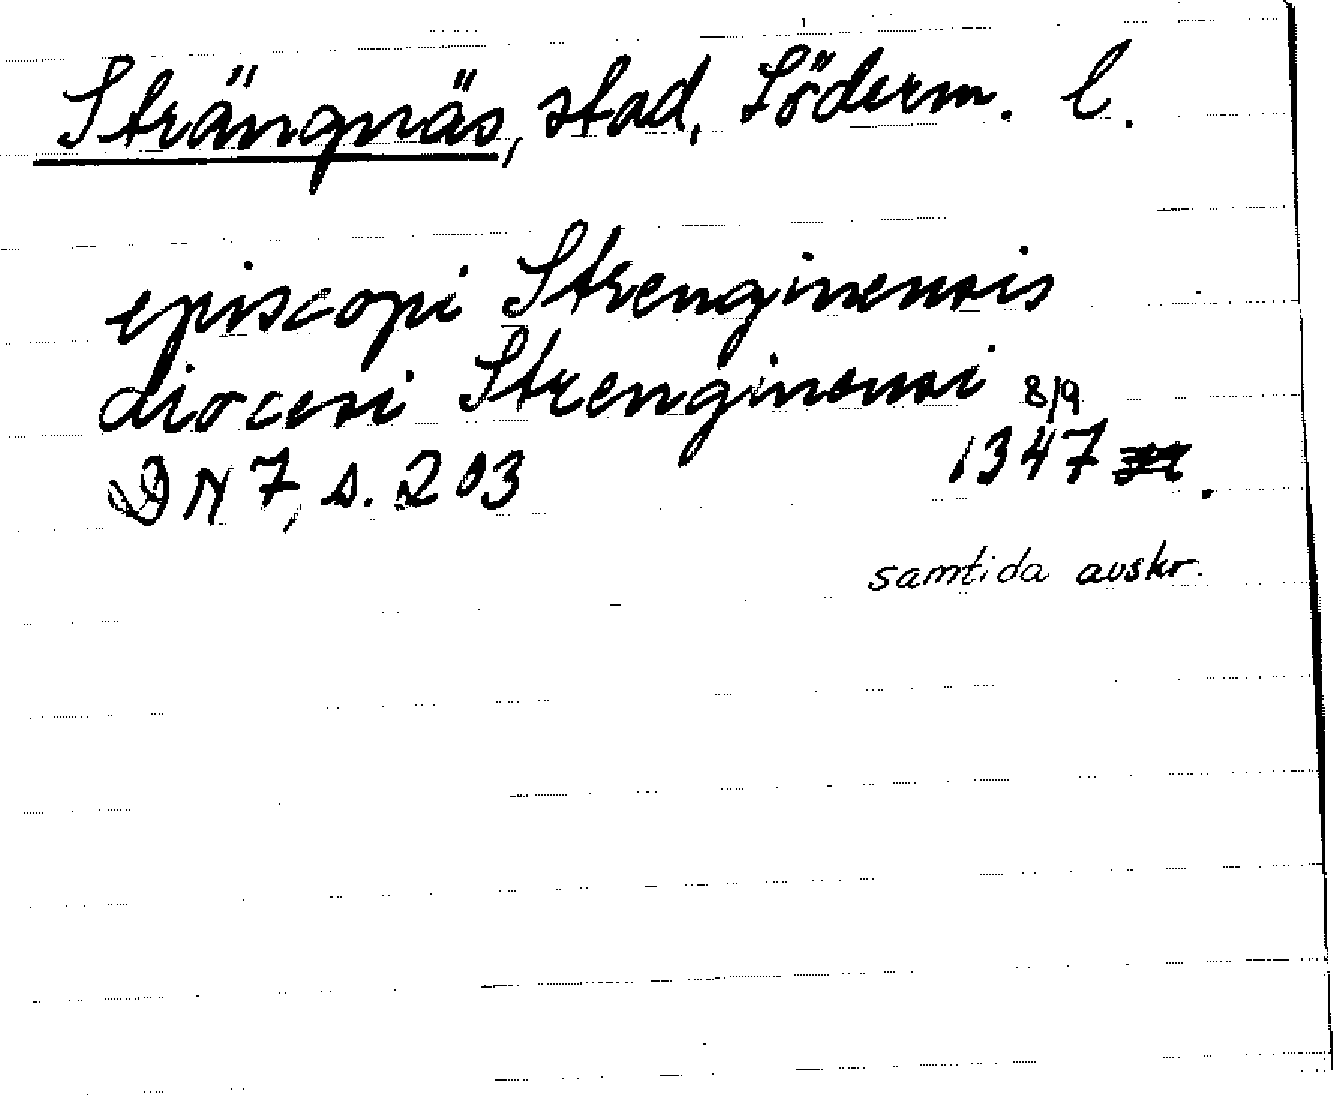 Strängnäs, stad, Söderm. l.
episcopi Strenginensis
diocesi Strenginensi 8/9
DN 7, s. 203 1347 .
samtida avskr.